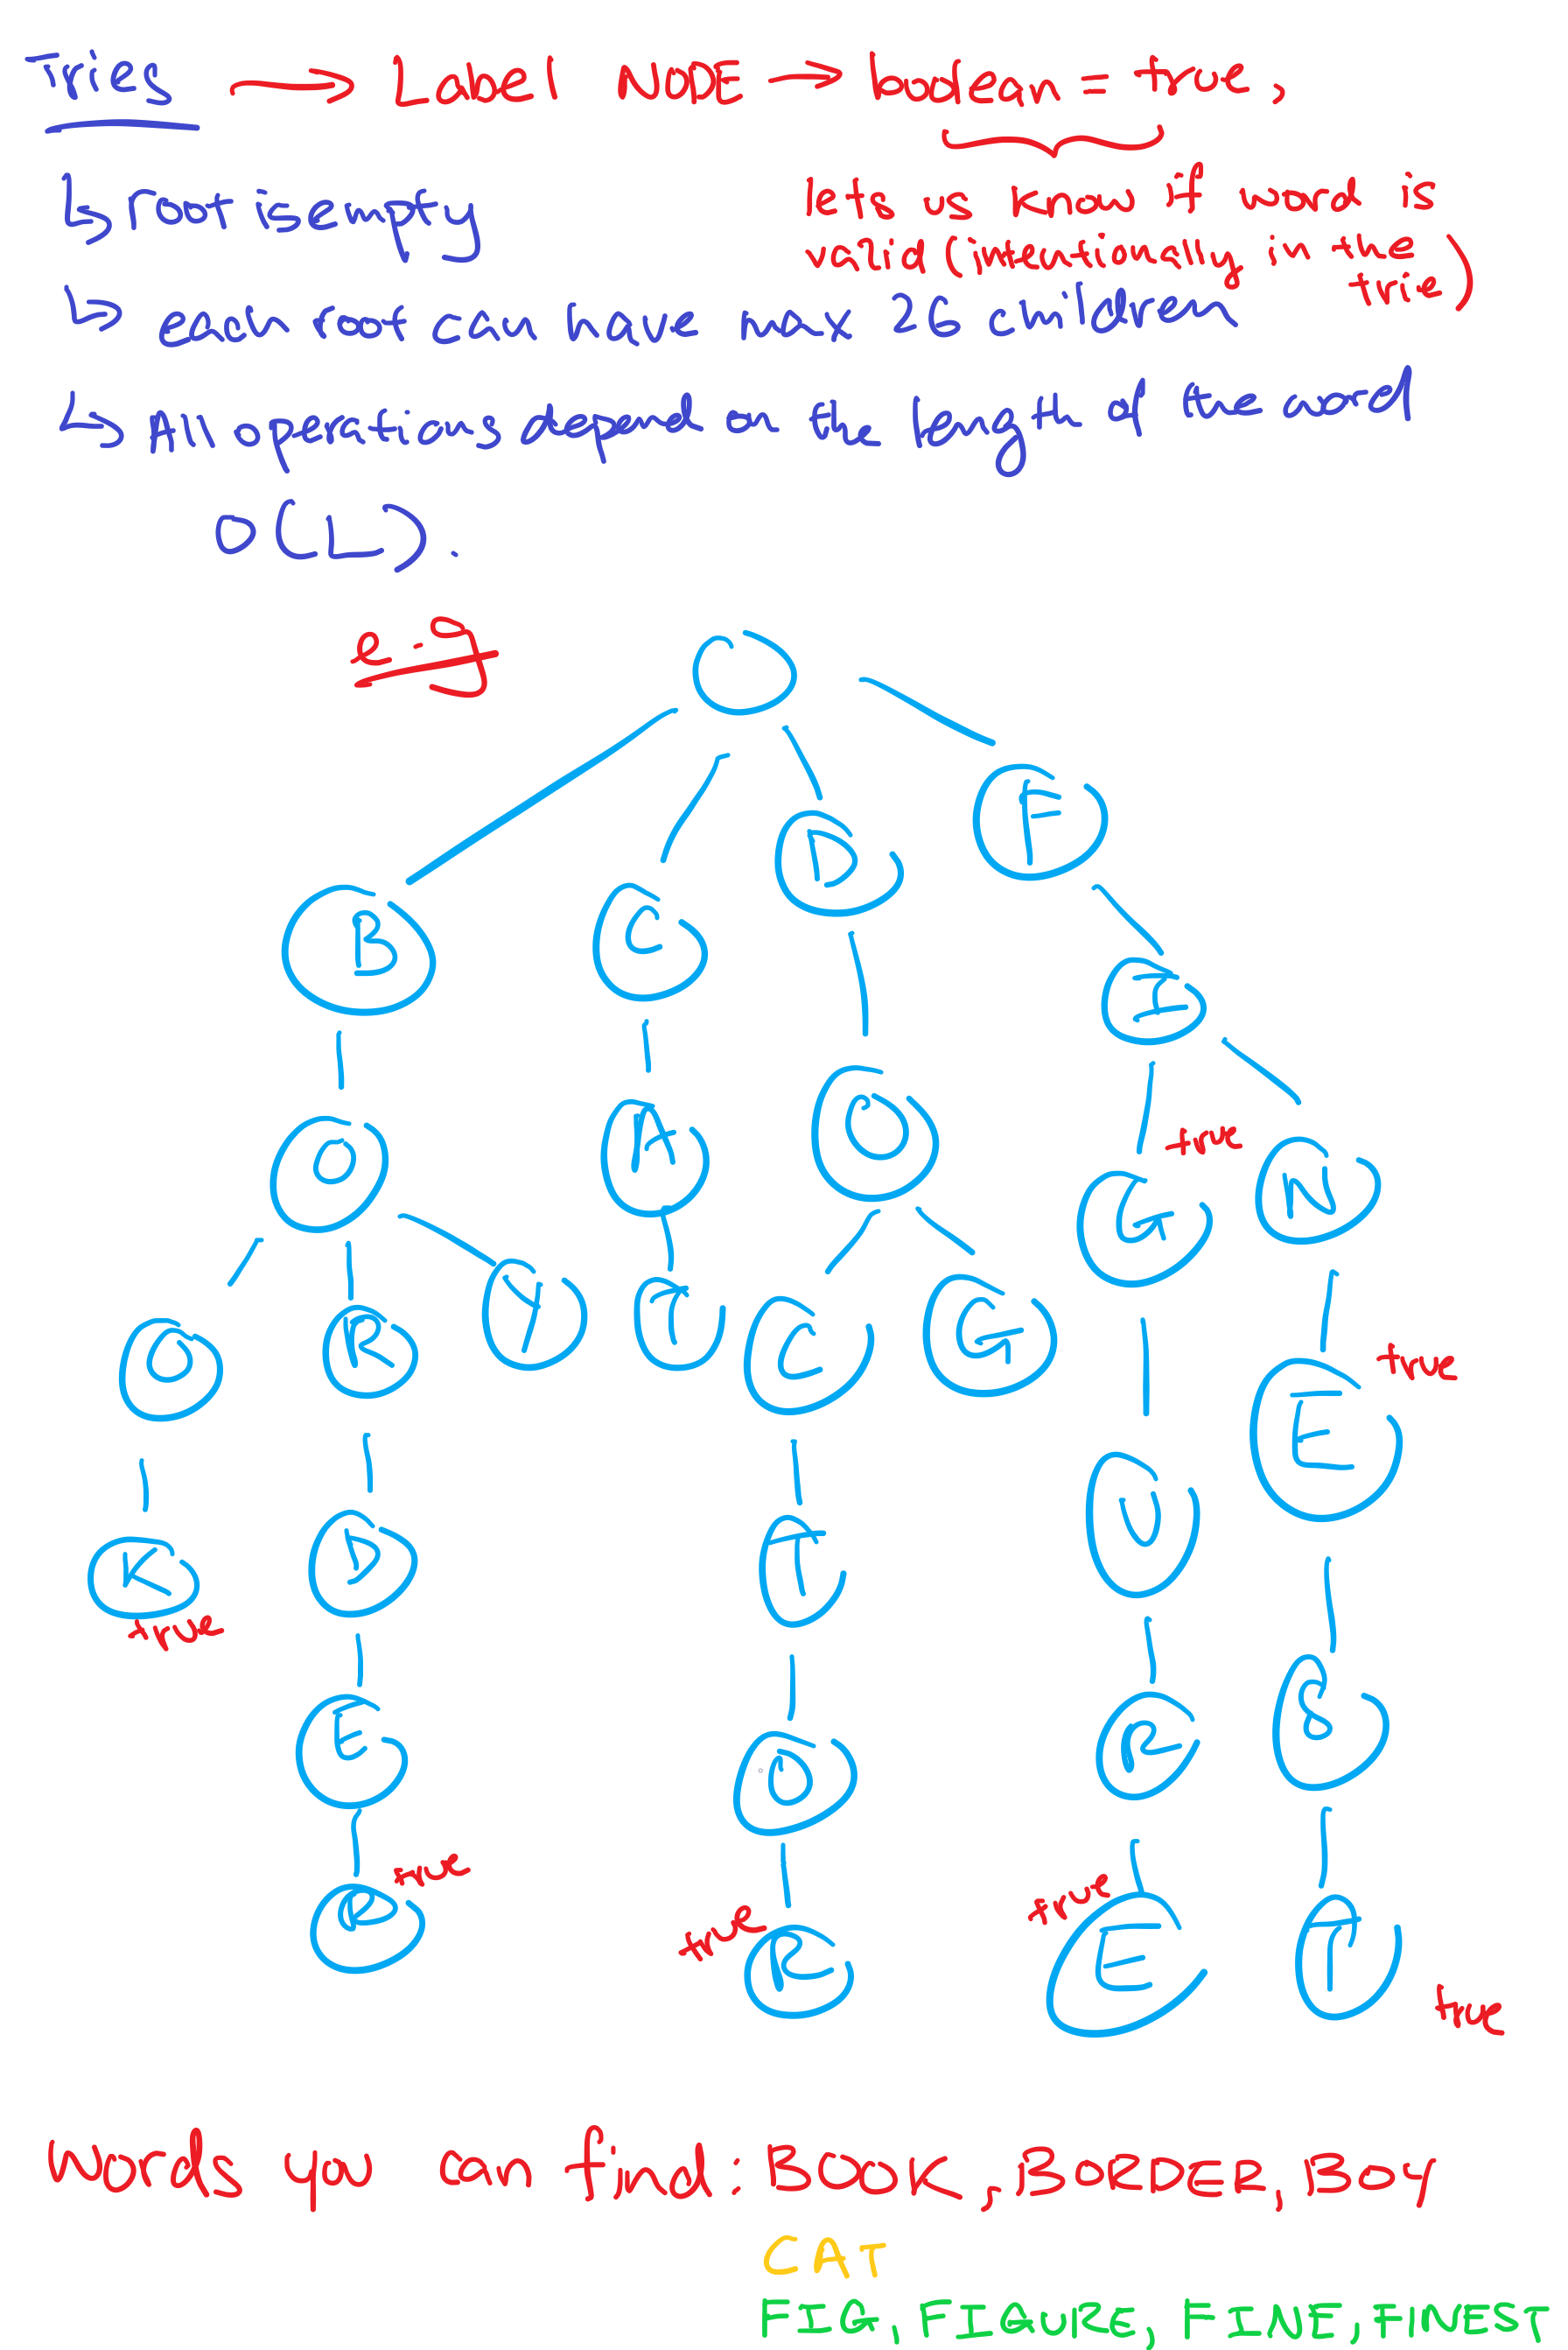 Tries → Label NODE → boolean = true,
lets us know if word is
valid (intentionally in the
trie)
↳ root is empty
↳ each root can have max 26 children
↳ All operations depend on the length of the word
O(L).
e.g
F
D
B C
I
O A O
true
G N
O R Y T C G
E true
K D T U
true
E O R S
R true
true R
true E T
true
Words you can find: BOOK, BORDER, BOY
CAT
FIG, FIGURE, FINE, FINEST